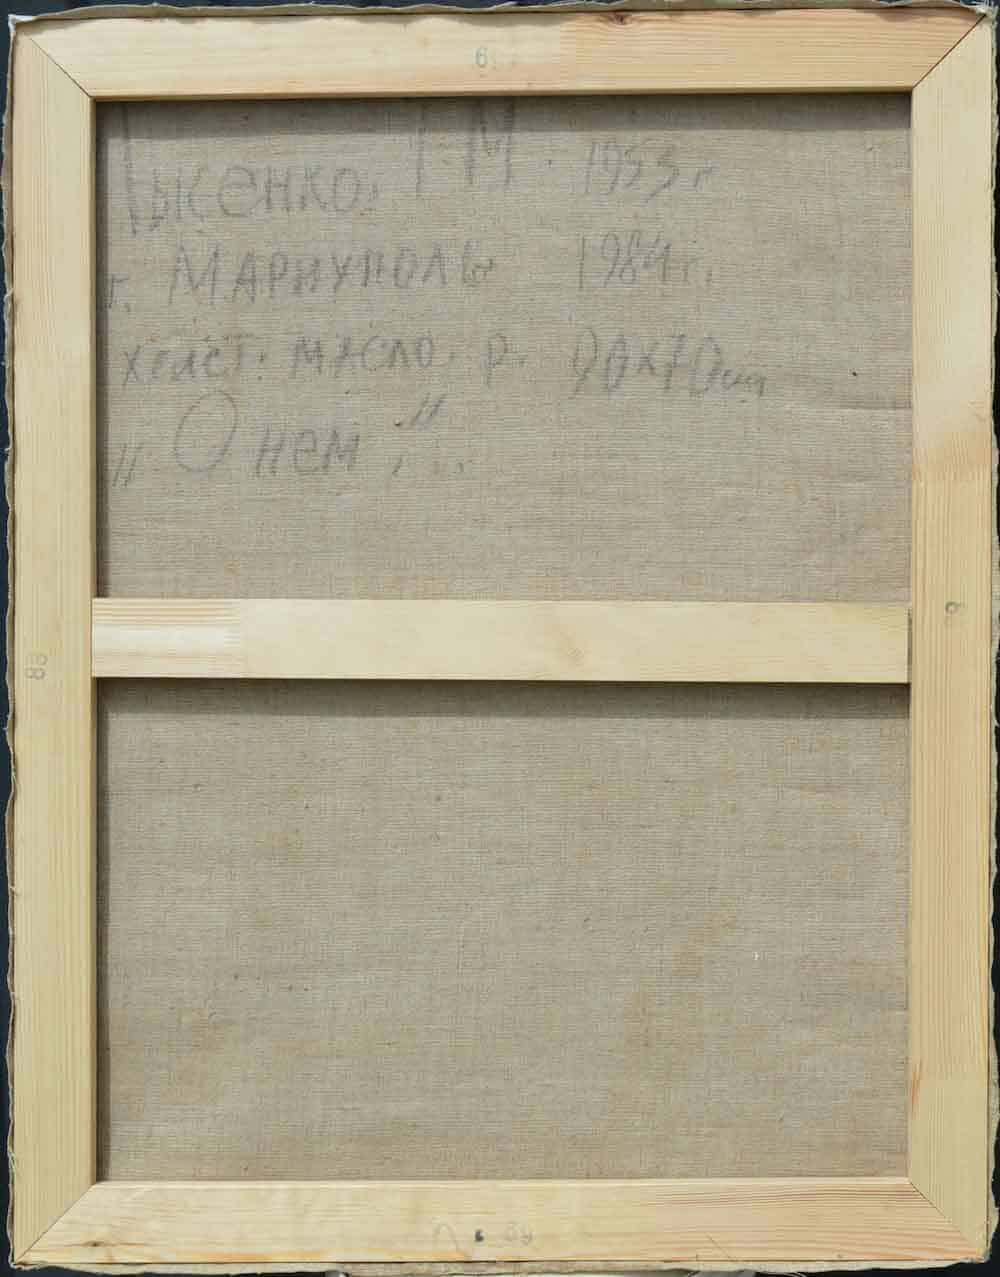 Лысенко. Г М. 1953 г
г. Мариуполь 1984 г.
холст. масло. р. 90x70см
„ О нем... "
88